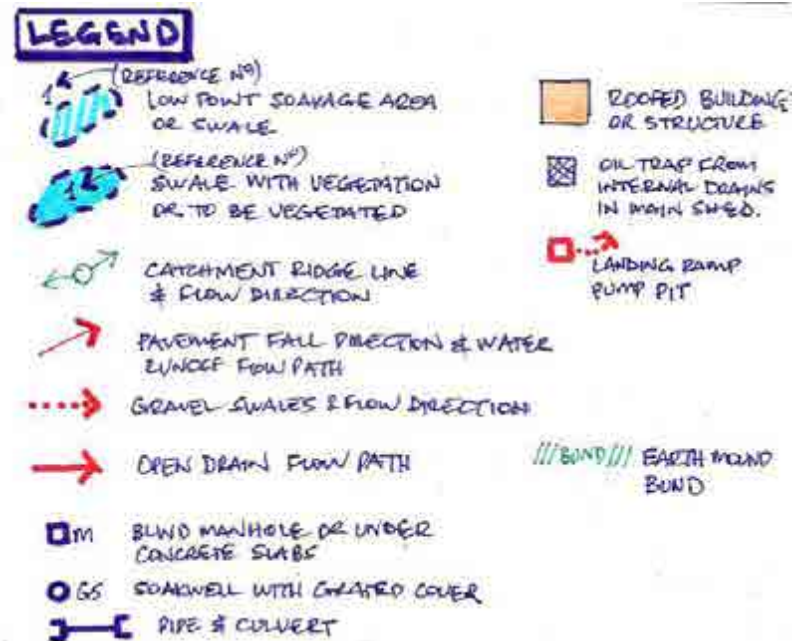 LEGEND
1
(REFERENCE Nº)
LOW POINT SOAKAGE AREA
OR SWALE
(REFERENCE Nº)
1
SWALE WITH VEGETATION
OR TO BE VEGETATED
CATCHMENT RIDGE LINE
& FLOW DIRECTION
PAVEMENT FALL DIRECTION & WATER
RUNOFF FLOW PATH
GRAVEL SWALES & FLOW DIRECTION
OPEN DRAIN FLOW PATH
M BLIND MANHOLE OR UNDER
CONCRETE SLABS
GS SOAKWELL WITH GRATED COVER
PIPE & CULVERT
ROOFED BUILDING
OR STRUCTURE
OIL TRAP FROM
INTERNAL DRAINS
IN MAIN SHED.
LANDING RAMP
PUMP PIT
///BUND/// EARTH MOUND
BUND